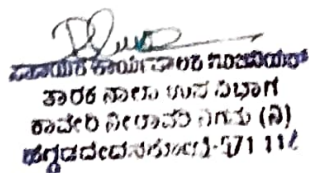 ಸಹಾಯಕ ಕಾರ್ಯಪಾಲಕ ಇಂಜಿನಿಯರ್
ತಾರಕ ನಾಲಾ ಉಪ ವಿಭಾಗ
ಕಾವೇರಿ ನೀರಾವರಿ ನಿಗಮ (ನಿ)
ಹೆಗ್ಗಡದೇವನಕೋಟೆ-571 11